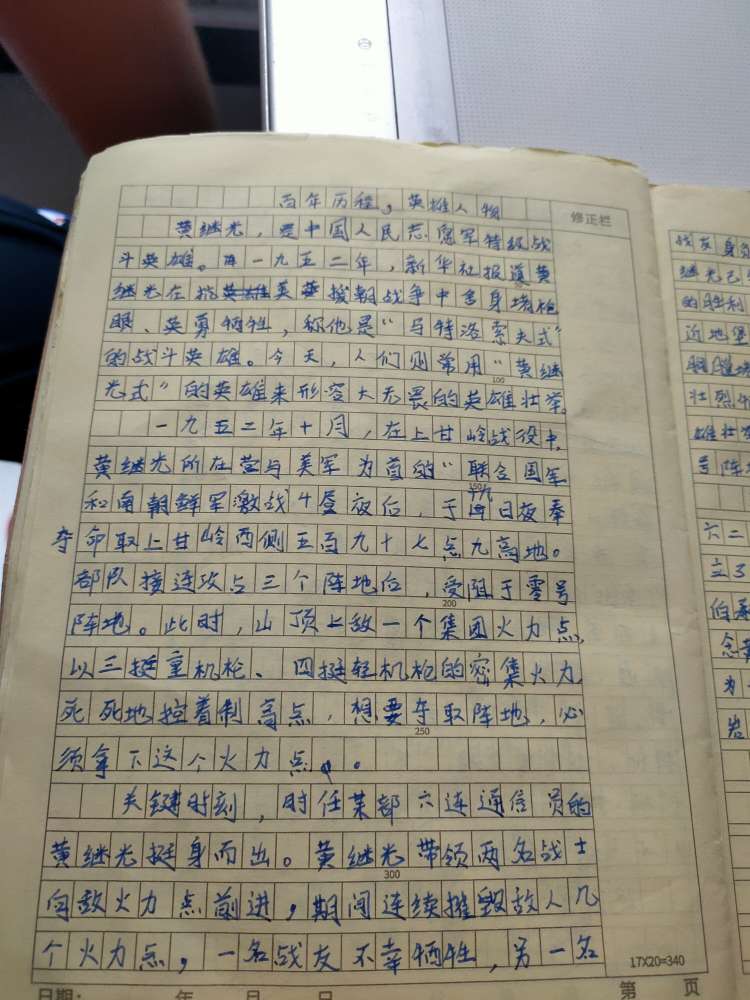 百年历程，英雄人物
修正栏
黄继光，是中国人民志愿军特级战
斗英雄。一九五二年，新华社报道黄
继光在抗美援朝战争中舍身堵枪
眼、英勇牺牲，称他是“马特洛索夫式”
的战斗英雄。今天，人们则常用“黄继
100
光式”的英雄来形容大无畏的英雄壮举。
一九五二年十月，在上甘岭战役中，
黄继光所在营与美军为首的“联合国军
150
和南朝鲜军激战4昼夜后，于十九日夜奉
命夺取上甘岭西侧五百九十七点九高地。
部队接连攻占三个阵地后，受阻于零号
200
阵地。此时，山顶上敌一个集团火力点，
以三挺重机枪、四挺轻机枪的密集火力
死死地控着制高点，想要夺取阵地，必
250
须拿下这个火力点。
关键时刻，时任某部六连通信员的
黄继光挺身而出。黄继光带领两名战士
300
向敌火力点前进，期间连续摧毁敌人几
个火力点，一名战友不幸牺牲，另一名
17X20=340
日期： 年 月 日
第 页
战友身负
继光已
的胜利
近地堡
胸膛堵
壮烈牺
雄壮
号阵
六二
立了
伯
念黄
为
岩